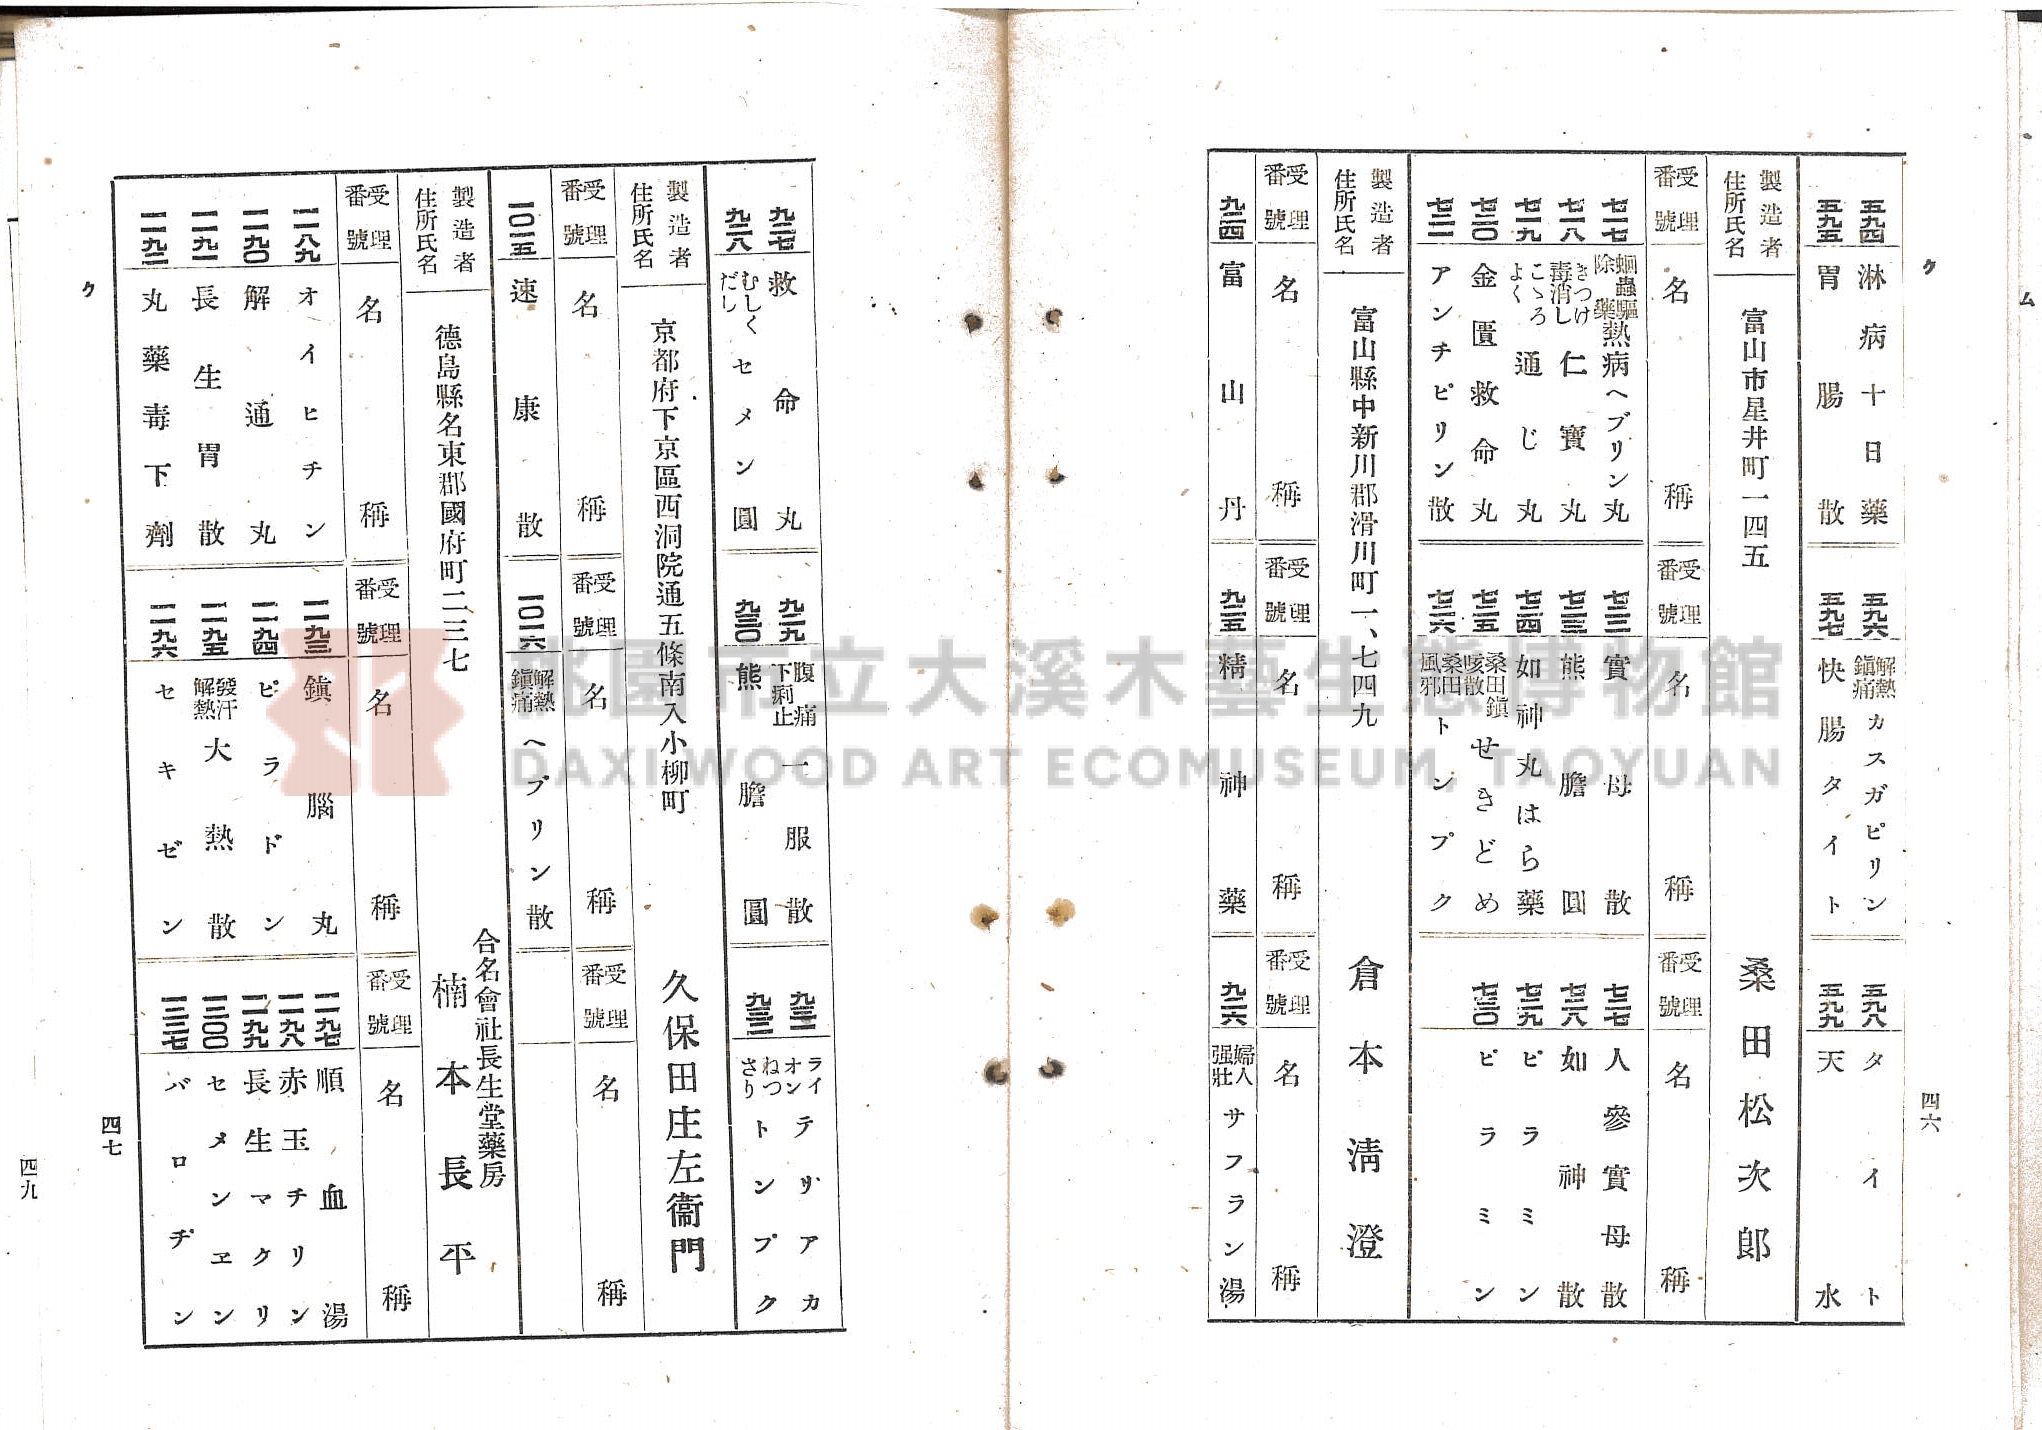 ク
四六
五九四 淋病十日藥
五九五 胃腸散
五九六 解熱鎭痛 カスガピリン
五九七 快腸タイト
五九八 タイト
五九九 天水
製造者住所氏名 富山市星井町一四五 桑田松次郎
受理番號 名稱 受理番號 名稱 受理番號 名稱
七一七 蛔蟲驅除藥 熱病ヘブリン丸
七一八 きつけ毒消し 仁寶丸
七一九 こゝろよく 通じ丸
七二〇 金匱救命丸
七二一 アンチピリン散
七二二 實母散
七二三 熊膽圓
七二四 如神丸はら藥
七二五 桑田鎭咳散 せきどめ
七二六 桑田風邪 トンプク
七二七 人參實母散
七二八 如神散
七二九 ピラミン
七三〇 ピラミン
製造者住所氏名 富山縣中新川郡滑川町一、七四九 倉本淸澄
受理番號 名稱 受理番號 名稱 受理番號 名稱
九二四 富山丹
九二五 精神藥
九二六 婦人强壯 サフラン湯
九二七 救命丸
九二八 むしくだし セメン圓
九二九 腹痛下痢止 一服散
九三〇 熊膽圓
九三一 ライオン テリアカ
九三二 ねつさり トンプク
製造者住所氏名 京都府下京區西洞院通五條南入小柳町 久保田庄左衞門
受理番號 名稱 受理番號 名稱 受理番號 名稱
一〇一五 速康散
一〇一六 解熱鎭痛 ヘブリン散
製造者住所氏名 德島縣名東郡國府町二三七 合名會社長生堂藥房 楠本長平
受理番號 名稱 受理番號 名稱 受理番號 名稱
一一八九 オイヒチン
一一九〇 解通丸
一一九一 長生胃散
一一九二 丸藥毒下劑
一一九三 鎭腦丸
一一九四 ピラドン
一一九五 發汗解熱 大熱散
一一九六 セキゼン
一一九七 順血湯
一一九八 赤玉チリン
一一九九 長生マクリ
一二〇〇 セメンヱン
一二三七 バロヂン
ク
四七
四九
ム
桃園市立大溪木藝生態博物館
DAXI WOOD ART ECOMUSEUM, TAOYUAN